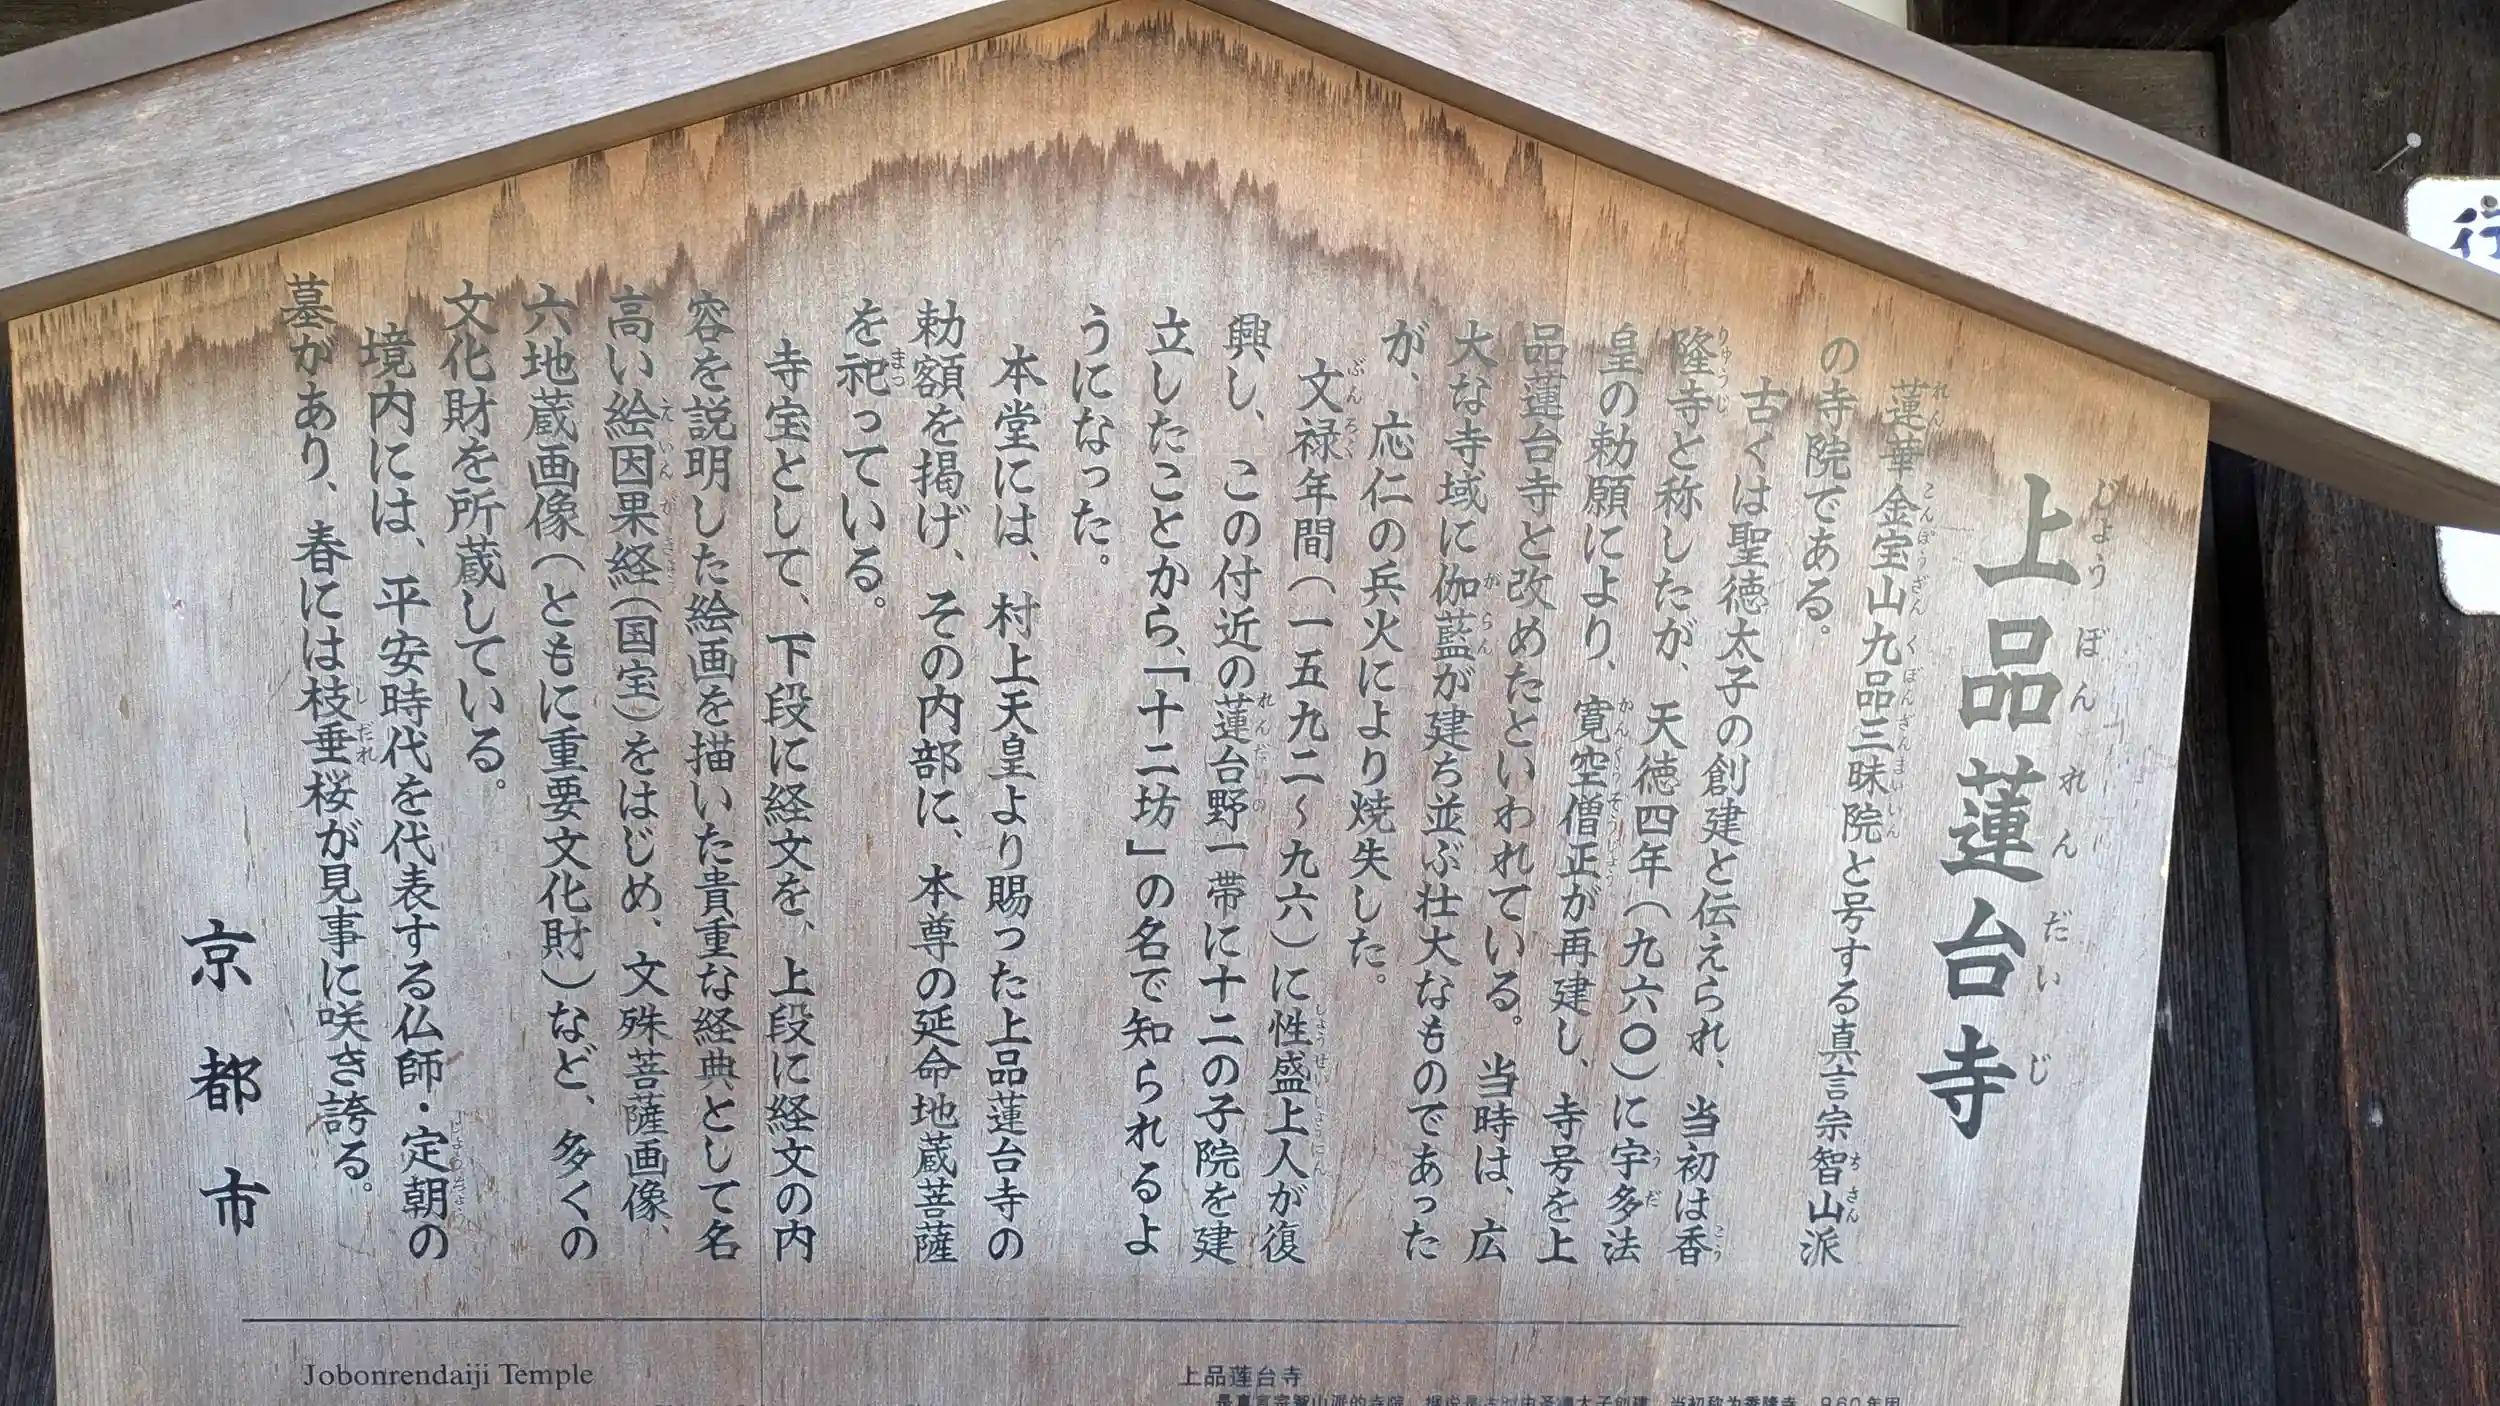 上品蓮台寺
じょうぼんれんだいじ
蓮華金宝山九品三昧院と号する真言宗智山派
の寺院である。
古くは聖徳太子の創建と伝えられ、当初は香
隆寺と称したが、天徳四年（九六〇）に宇多法
皇の勅願により、寛空僧正が再建し、寺号を上
品蓮台寺と改めたといわれている。当時は、広
大な寺域に伽藍が建ち並ぶ壮大なものであった
が、応仁の兵火により焼失した。
文禄年間（一五九二～九六）に性盛上人が復
興し、この付近の蓮台野一帯に十二の子院を建
立したことから、「十二坊」の名で知られるよ
うになった。
本堂には、村上天皇より賜った上品蓮台寺の
勅額を掲げ、その内部に、本尊の延命地蔵菩薩
を祀っている。
寺宝として、下段に経文を、上段に経文の内
容を説明した絵画を描いた貴重な経典として名
高い絵因果経（国宝）をはじめ、文殊菩薩画像、
六地蔵画像（ともに重要文化財）など、多くの
文化財を所蔵している。
境内には、平安時代を代表する仏師・定朝の
墓があり、春には枝垂桜が見事に咲き誇る。
京都市
Jobonrendaiji Temple
上品莲台寺
行